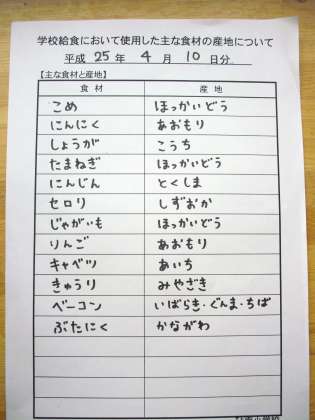 学校給食において使用した主な食材の産地について
平成 25 年 4 月 10 日分
【主な食材と産地】
食材 産地
こめ ほっかいどう
にんにく あおもり
しょうが こうち
たまねぎ ほっかいどう
にんじん とくしま
セロリ しずおか
じゃがいも ほっかいどう
りんご あおもり
キャベツ あいち
きゅうり みやざき
ベーコン いばらき・ぐんま・ちば
ぶたにく かながわ